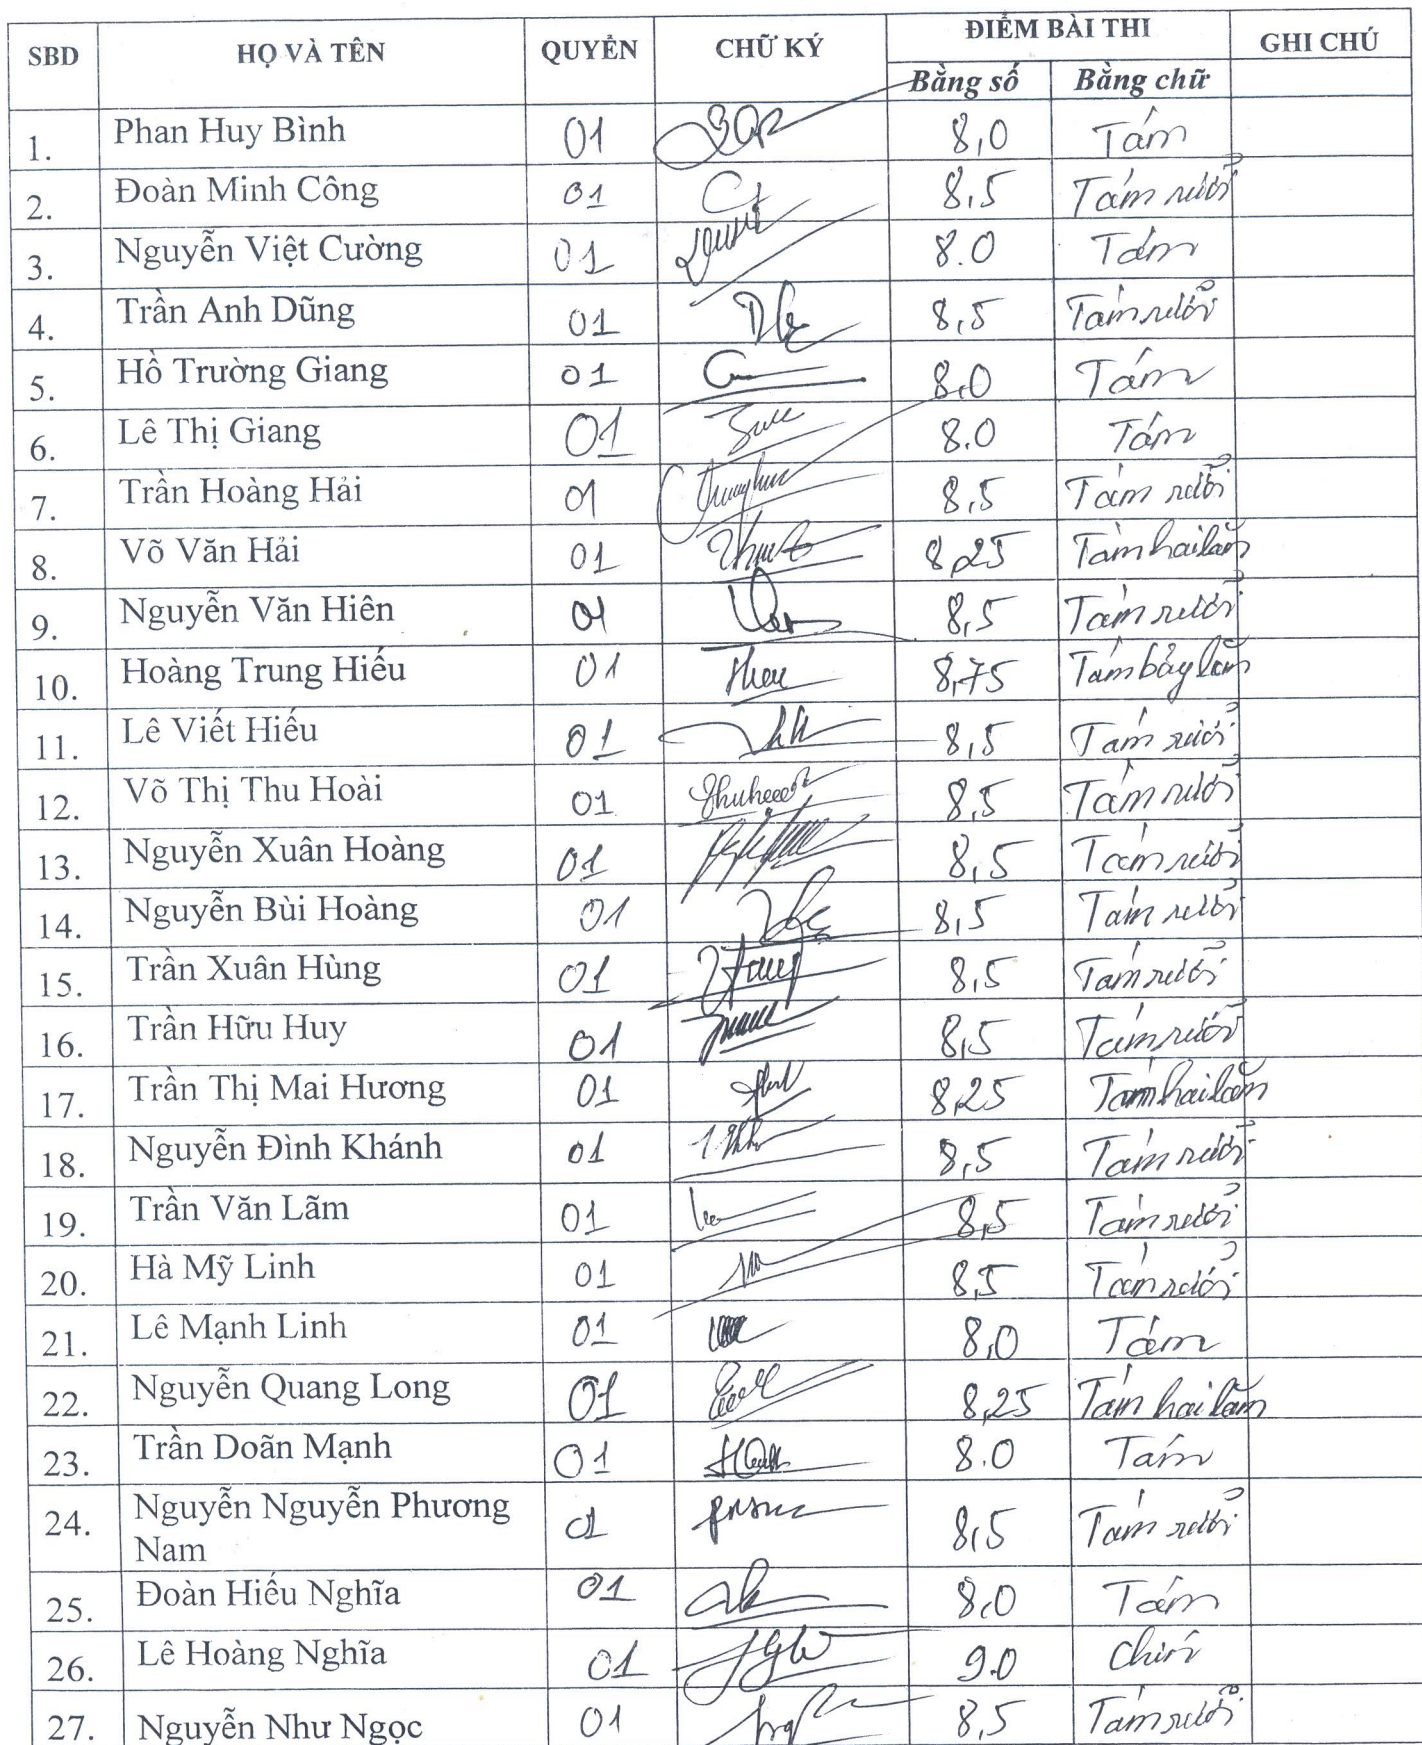 SBD HỌ VÀ TÊN QUYỂN CHỮ KÝ ĐIỂM BÀI THI GHI CHÚ
Bằng số Bằng chữ
1. Phan Huy Bình 01 8,0 Tám
2. Đoàn Minh Công 01 8,5 Tám rưỡi
3. Nguyễn Việt Cường 01 8.0 Tám
4. Trần Anh Dũng 01 8,5 Tám rưỡi
5. Hồ Trường Giang 01 8,0 Tám
6. Lê Thị Giang 01 8.0 Tám
7. Trần Hoàng Hải 01 8,5 Tám rưỡi
8. Võ Văn Hải 01 8,25 Tám hai lăm
9. Nguyễn Văn Hiên 01 8,5 Tám rưỡi
10. Hoàng Trung Hiếu 01 8,75 Tám bảy lăm
11. Lê Viết Hiếu 01 8,5 Tám rưỡi
12. Võ Thị Thu Hoài 01 8,5 Tám rưỡi
13. Nguyễn Xuân Hoàng 01 8,5 Tám rưỡi
14. Nguyễn Bùi Hoàng 01 8,5 Tám rưỡi
15. Trần Xuân Hùng 01 8,5 Tám rưỡi
16. Trần Hữu Huy 01 8,5 Tám rưỡi
17. Trần Thị Mai Hương 01 8,25 Tám hai lăm
18. Nguyễn Đình Khánh 01 8,5 Tám rưỡi
19. Trần Văn Lãm 01 8,5 Tám rưỡi
20. Hà Mỹ Linh 01 8,5 Tám rưỡi
21. Lê Mạnh Linh 01 8,0 Tám
22. Nguyễn Quang Long 01 8,25 Tám hai lăm
23. Trần Doãn Mạnh 01 8.0 Tám
24. Nguyễn Nguyễn Phương 01 8,5 Tám rưỡi
Nam
25. Đoàn Hiếu Nghĩa 01 8,0 Tám
26. Lê Hoàng Nghĩa 01 9.0 Chín
27. Nguyễn Như Ngọc 01 8,5 Tám rưỡi